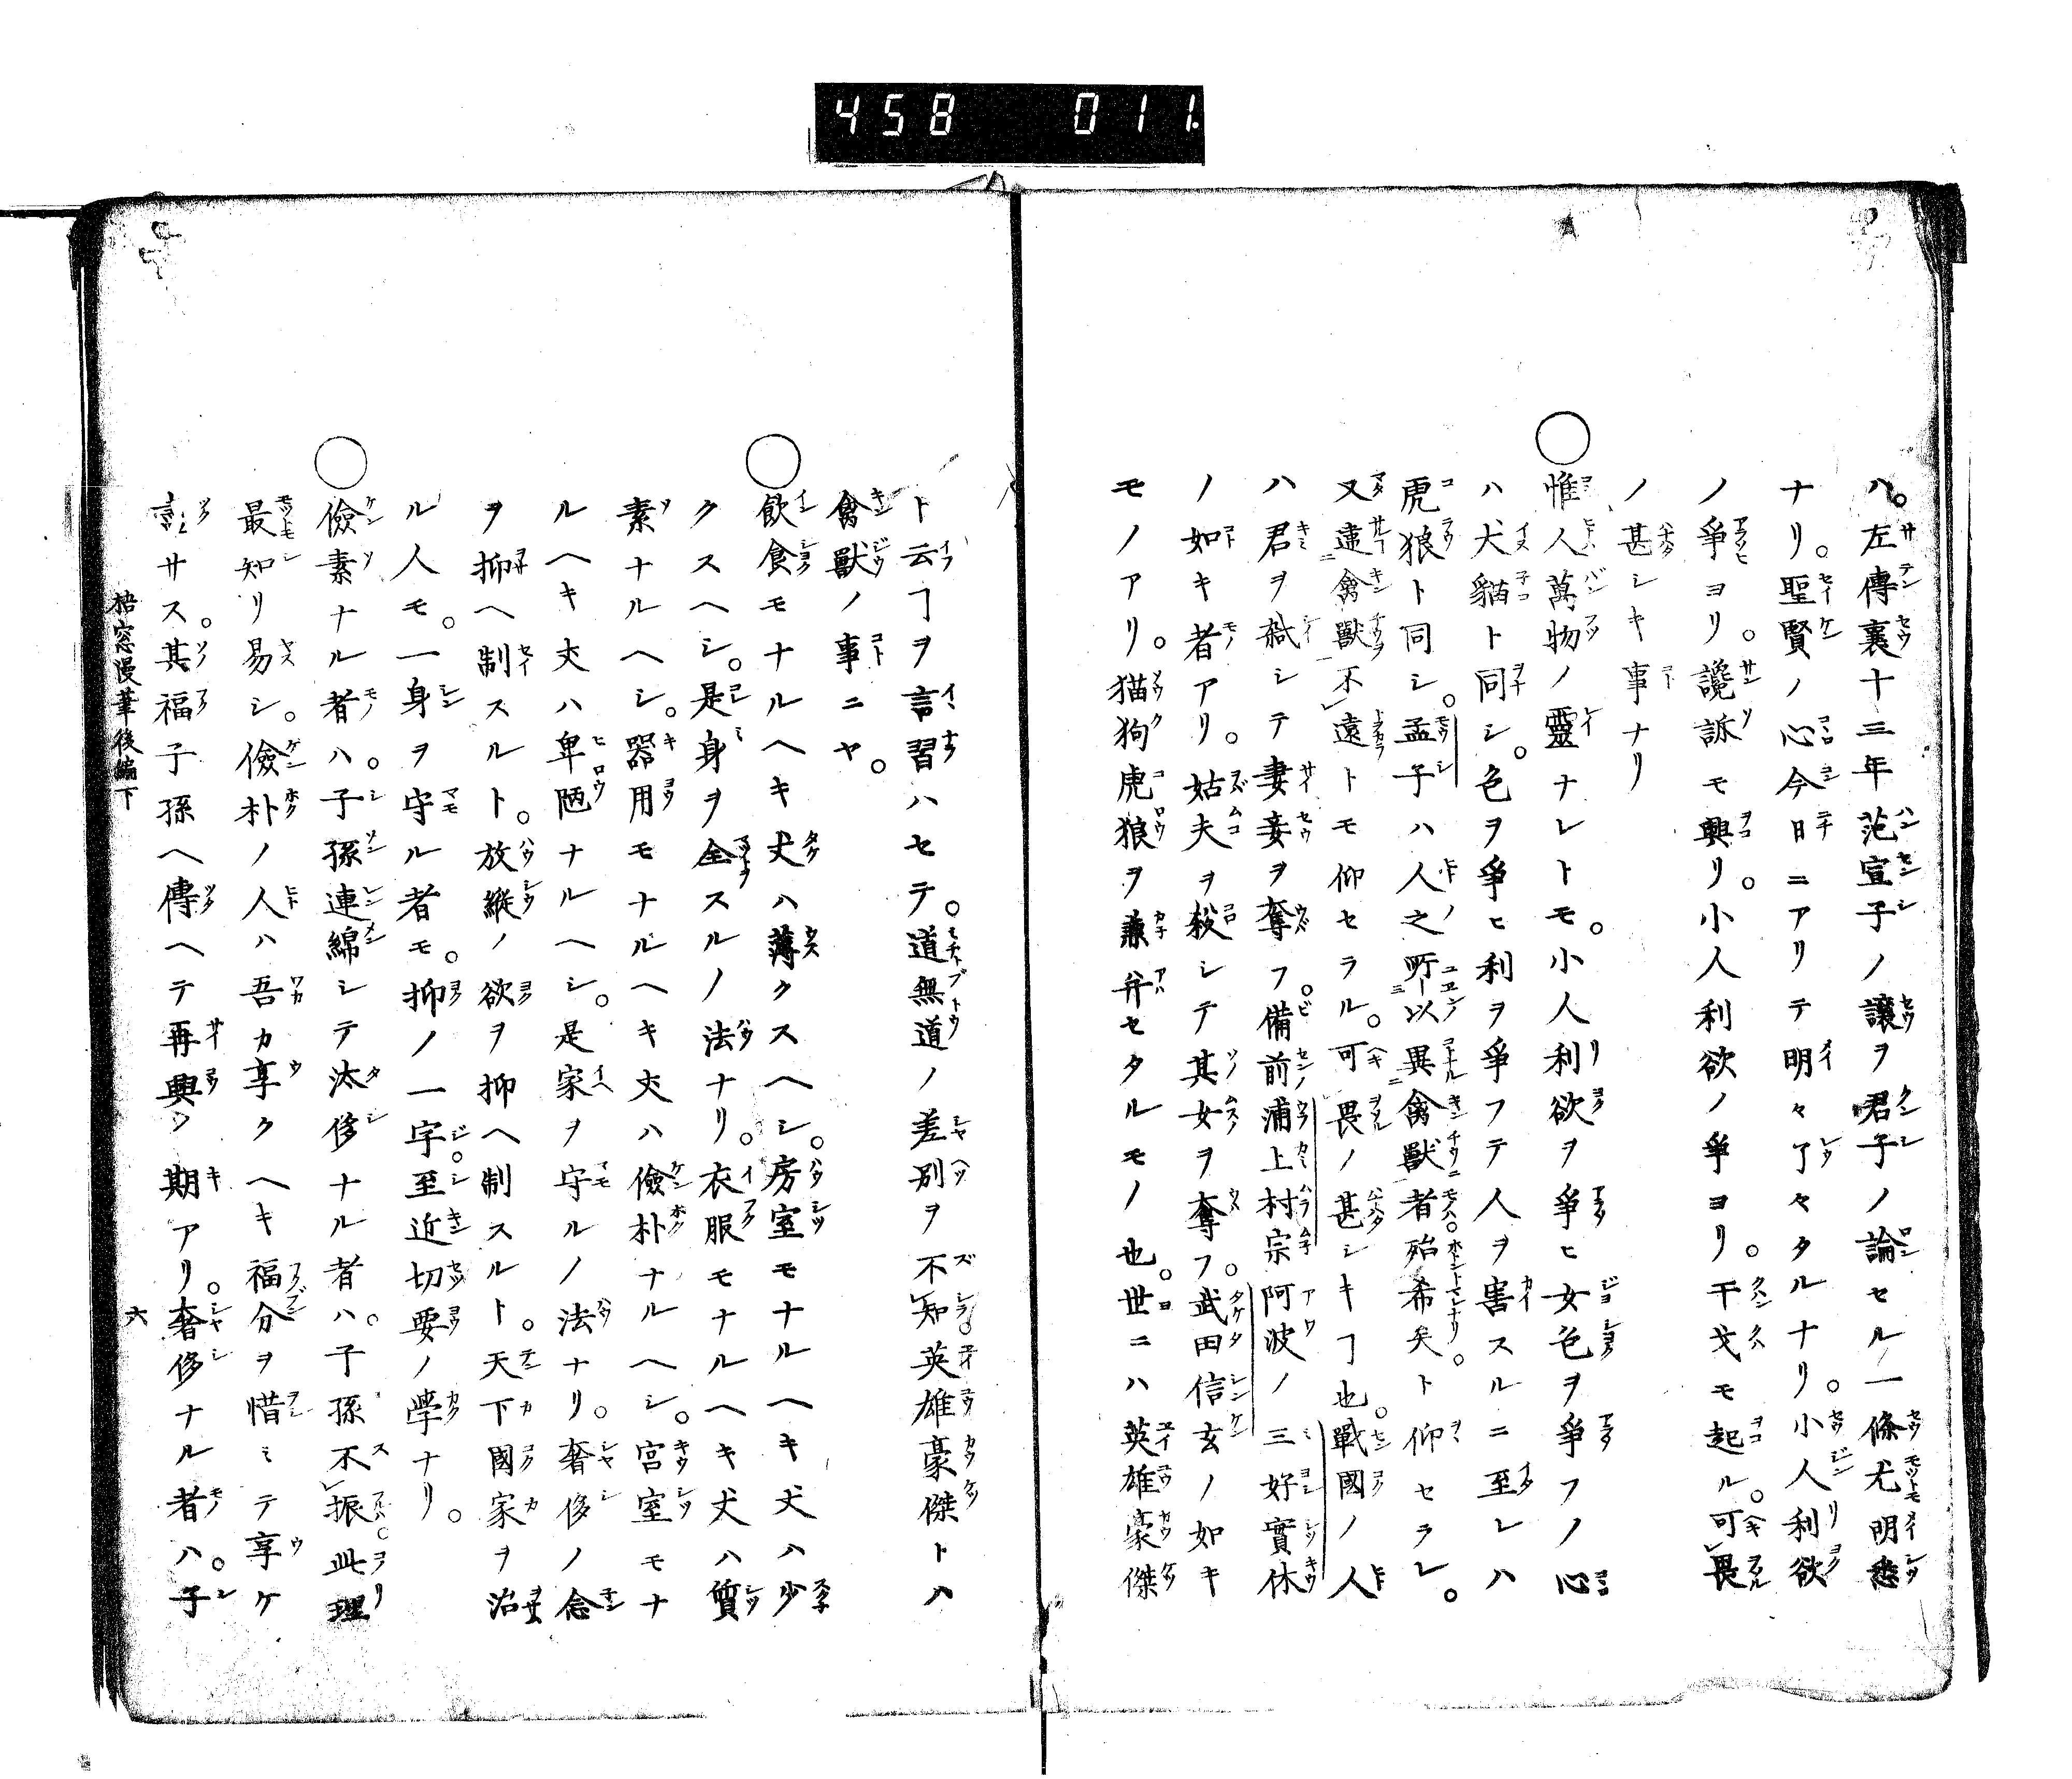 458 011.
ハ。左傳襄十三年范宣子ノ讓ヲ君子ノ論セル一條尤明悉
ナリ。聖賢ノ心今日ニアリテ明々了々タルナリ。小人利欲
ノ爭ヨリ。讒訴モ興リ。小人利欲ノ爭ヨリ。干戈モ起ル。可畏
ノ甚シキ事ナリ
○惟人萬物ノ靈ナレトモ。小人利欲ヲ爭ヒ女色ヲ爭フノ心
ハ犬貓ト同シ。色ヲ爭ヒ利ヲ爭フテ人ヲ害スルニ至レハ
虎狼ト同シ。孟子ハ人之所以異禽獸者殆希矣ト仰セラレ。
又違禽獸不遠トモ仰セラル。可畏ノ甚シキヿ也。戰國ノ人
ハ君ヲ弑シテ妻妾ヲ奪フ。備前浦上村宗阿波ノ三好實休
ノ如キ者アリ。姑夫ヲ殺シテ其女ヲ奪フ。武田信玄ノ如キ
モノアリ。猫狗虎狼ヲ兼并セタルモノ也。世ニハ英雄豪傑
ト云ヿヲ言習ハセテ。道無道ノ差別ヲ不知。英雄豪傑トハ
禽獸ノ事ニヤ。
○飲食モナルヘキ丈ハ薄クスヘシ。房室モナルヘキ丈ハ少
クスヘシ。是身ヲ全スルノ法ナリ。衣服モナルヘキ丈ハ質
素ナルヘシ。器用モナルヘキ丈ハ儉朴ナルヘシ。宮室モナ
ルヘキ丈ハ卑陋ナルヘシ。是家ヲ守ルノ法ナリ。奢侈ノ念
ヲ抑ヘ制スルト。放縱ノ欲ヲ抑ヘ制スルト。天下國家ヲ治
ル人モ。一身ヲ守ル者モ。抑ノ一字。至近切要ノ學ナリ。
○儉素ナル者ハ。子孫連綿シテ汰侈ナル者ハ。子孫不振。此理
最知リ易シ。儉朴ノ人ハ吾カ享クヘキ福分ヲ惜ミテ享ケ
サス。其福子孫ヘ傳ヘテ再興ノ期アリ。奢侈ナル者ハ。子
梧窓漫筆後編下
六